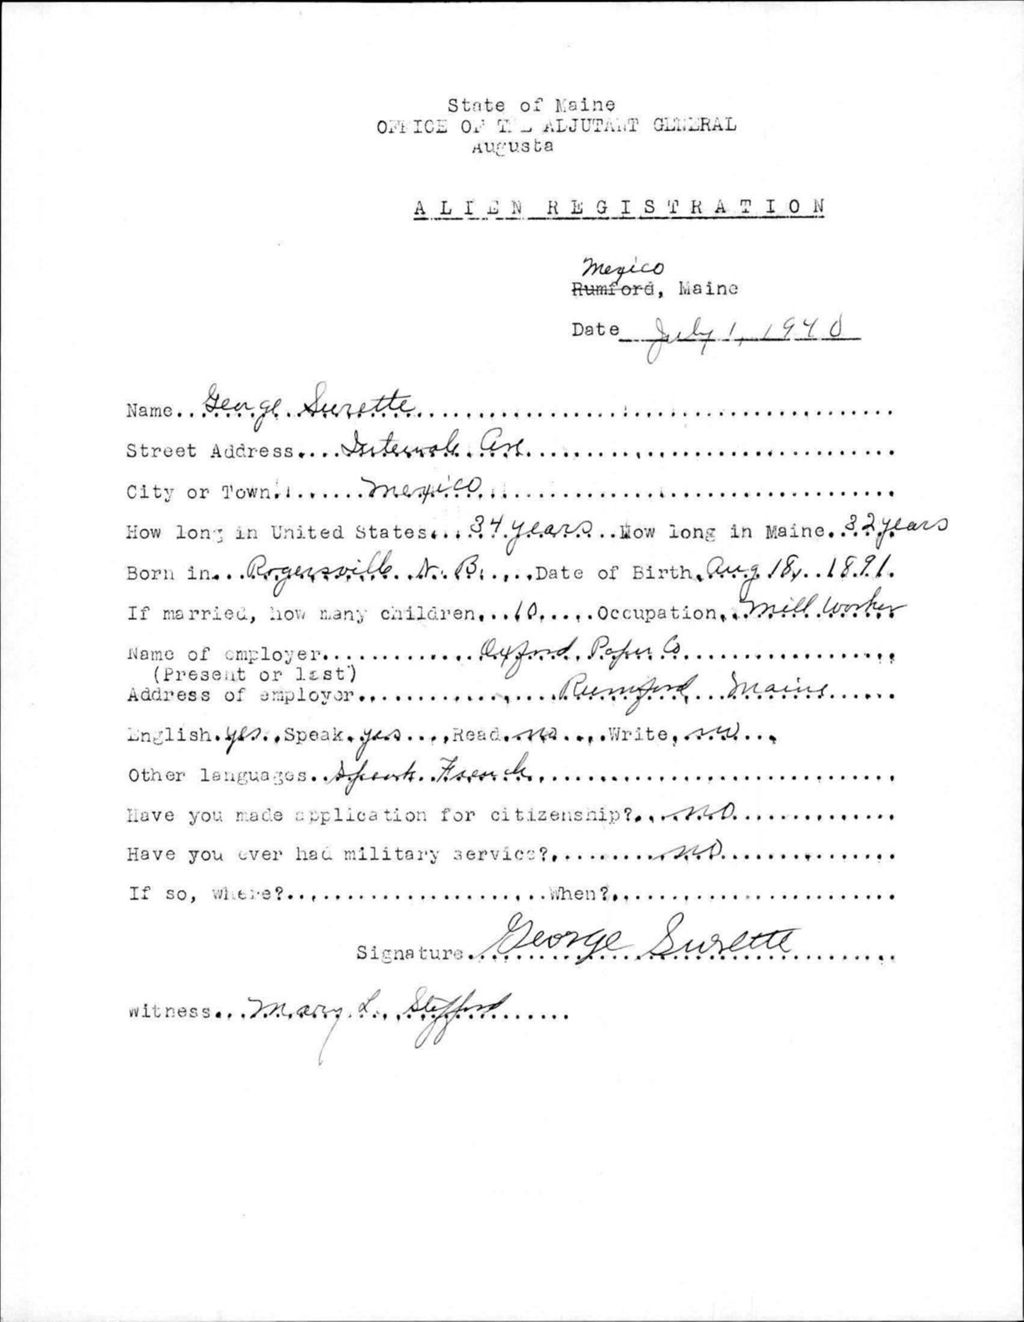 State of Maine
OFFICE OF THE ADJUTANT GENERAL
Augusta
ALIEN REGISTRATION
Mexico
Rumford, Maine
Date July 1, 1940
Name George Surette
Street Address Intervale Ave
City or Town Mexico
How long in United States 34 years How long in Maine 32 years
Born in Rogersville N. B. Date of Birth Aug 18, 1891
If married, how many children 10 Occupation Mill Worker
Name of employer Oxford Paper Co
(Present or last)
Address of employer Rumford Maine
English yes Speak yes Read no Write no
Other languages Speak French
Have you made application for citizenship? no
Have you ever had military service? no
If so, where? When?
Signature George Surette
Witness Mary L.